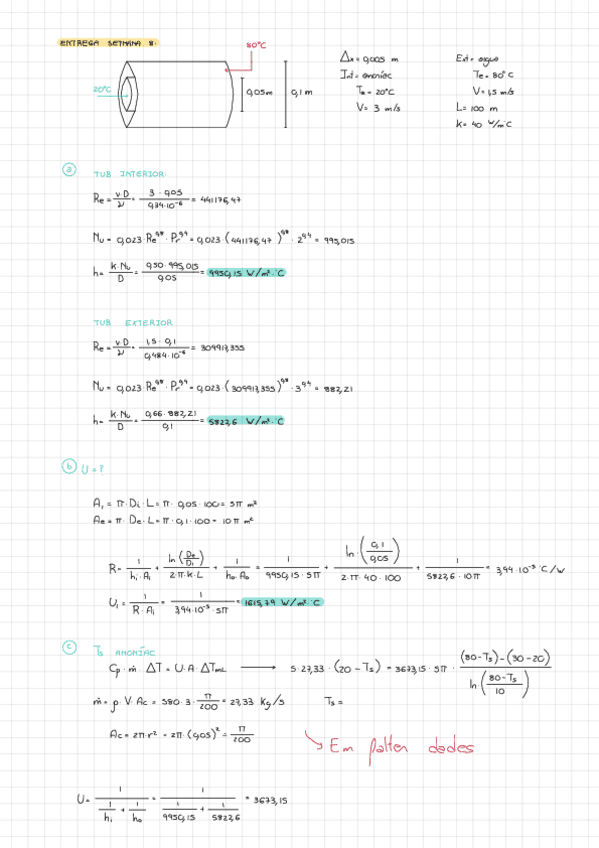 ENTREGA SETMANA 8:
80°C
20°C
0,05m
0,1 m
Δx = 0,005 m
Int = amoníac
Te = 20°C
V = 3 m/s
Ext = aigua
Te = 80°C
V = 1,5 m/s
L = 100 m
k = 40 W/m·C
a
TUB INTERIOR:
Re = v·D/ν = 3·0,05/0,34·10⁻⁶ = 441176,47
Nu = 0,023·Re^0,8·Pr^0,4 = 0,023·(441176,47)^0,8·2^0,4 = 995,015
h = k·Nu/D = 0,50·995,015/0,05 = 9950,15 W/m²·C
TUB EXTERIOR
Re = v·D/ν = 1,5·0,1/0,484·10⁻⁶ = 309917,355
Nu = 0,023·Re^0,8·Pr^0,4 = 0,023·(309917,355)^0,8·3^0,4 = 882,21
h = k·Nu/D = 0,66·882,21/0,1 = 5822,6 W/m²·C
b U = ?
Ai = π·Di·L = π·0,05·100 = 5π m²
Ae = π·De·L = π·0,1·100 = 10π m²
R = 1/hi·Ai + ln(De/Di)/2·π·k·L + 1/ho·Ao = 1/9950,15·5π + ln·(0,1/0,05)/2·π·40·100 + 1/5822,6·10π = 3,94·10⁻⁵ °C/W
Ui = 1/R·Ai = 1/3,94·10⁻⁵·5π = 1615,79 W/m²·C
c Ts AMONÍAC
Cp·ṁ·ΔT = U·A·ΔTmL ⟶ 5·27,33·(20-Ts) = 3673,15·5π·(80-Ts)-(30-20)/ln(80-Ts/10)
ṁ = ρ·V·Ac = 580·3·π/200 = 27,33 Kg/s Ts =
Ac = 2π·r² = 2π·(0,05)² = π/200
Em falten dades
U = 1/(1/hi + 1/ho) = 1/(1/9950,15 + 1/5822,6) = 3673,15